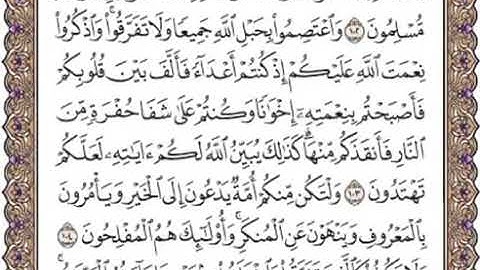 مُّسْلِمُونَ ١٠٢ وَاعْتَصِمُوا بِحَبْلِ اللَّهِ جَمِيعًا وَلَا تَفَرَّقُوا ۚ وَاذْكُرُوا
نِعْمَتَ اللَّهِ عَلَيْكُمْ إِذْ كُنتُمْ أَعْدَاءً فَأَلَّفَ بَيْنَ قُلُوبِكُمْ
فَأَصْبَحْتُم بِنِعْمَتِهِ إِخْوَانًا وَكُنتُمْ عَلَىٰ شَفَا حُفْرَةٍ مِّنَ
النَّارِ فَأَنقَذَكُم مِّنْهَا ۗ كَذَٰلِكَ يُبَيِّنُ اللَّهُ لَكُمْ ءَايَاتِهِ لَعَلَّكُمْ
تَهْتَدُونَ ١٠٣ وَلْتَكُن مِّنكُمْ أُمَّةٌ يَدْعُونَ إِلَى الْخَيْرِ وَيَأْمُرُونَ
بِالْمَعْرُوفِ وَيَنْهَوْنَ عَنِ الْمُنكَرِ ۚ وَأُولَٰئِكَ هُمُ الْمُفْلِحُونَ ١٠٤